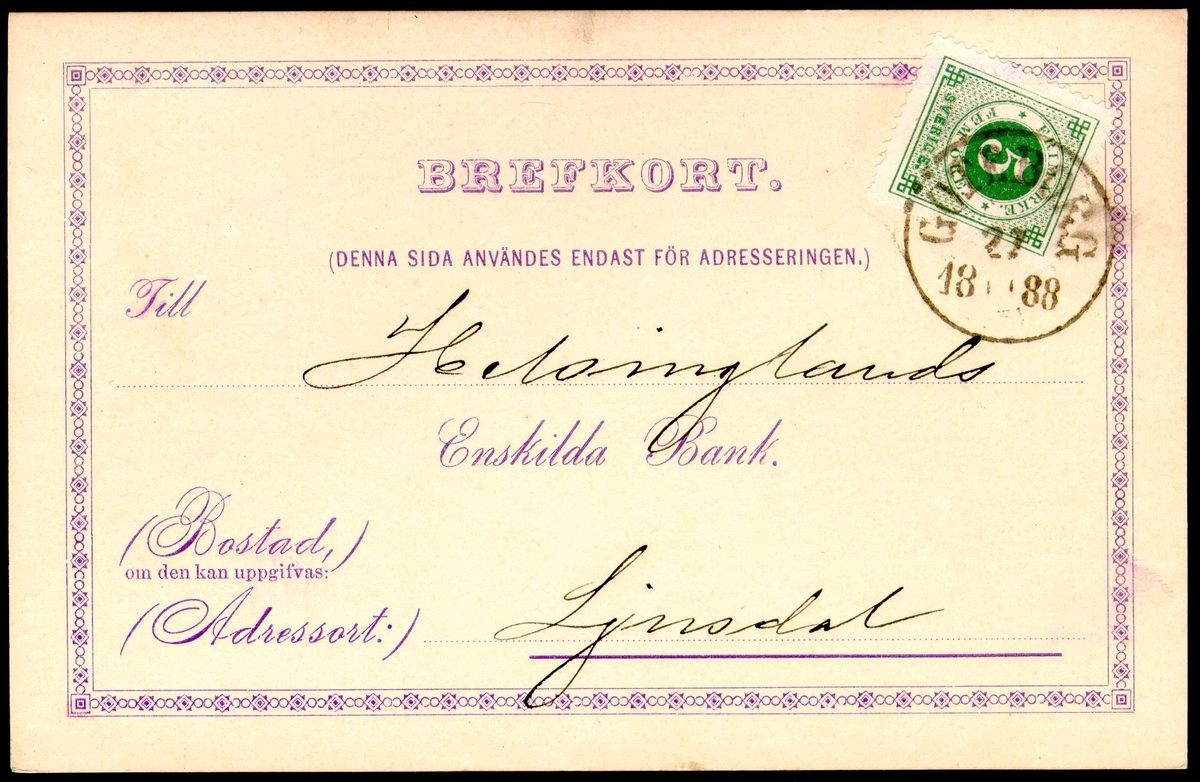 BREFKORT.
(DENNA SIDA ANVÄNDES ENDAST FÖR ADRESSERINGEN.)
Till
Helsinglands
Enskilda Bank.
(Bostad,)
om den kan uppgifvas:
(Adressort:)
Ljusdal
SVERIGE
FRIMARKE.
FEM ÖRE
5
27
1888